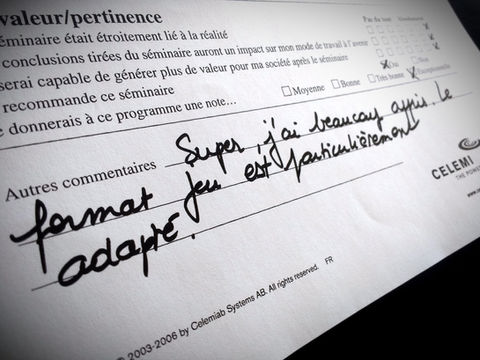 valeur/pertinence
Pas du tout
séminaire était étroitement lié à la réalité
conclusions tirées du séminaire auront un impact sur mon mode de travail à l'avenir
serai capable de générer plus de valeur pour ma société après le séminaire
recommande ce séminaire
Oui
Non
e donnerais à ce programme une note...
Moyenne
Bonne
Très bonne
Exceptionnelle
Autres commentaires Super, j'ai beaucoup appris. Le
format jeu est particulièrement
adapté.
CELEMI
THE POWER
© 2003-2006 by Celemiab Systems AB. All rights reserved. FR